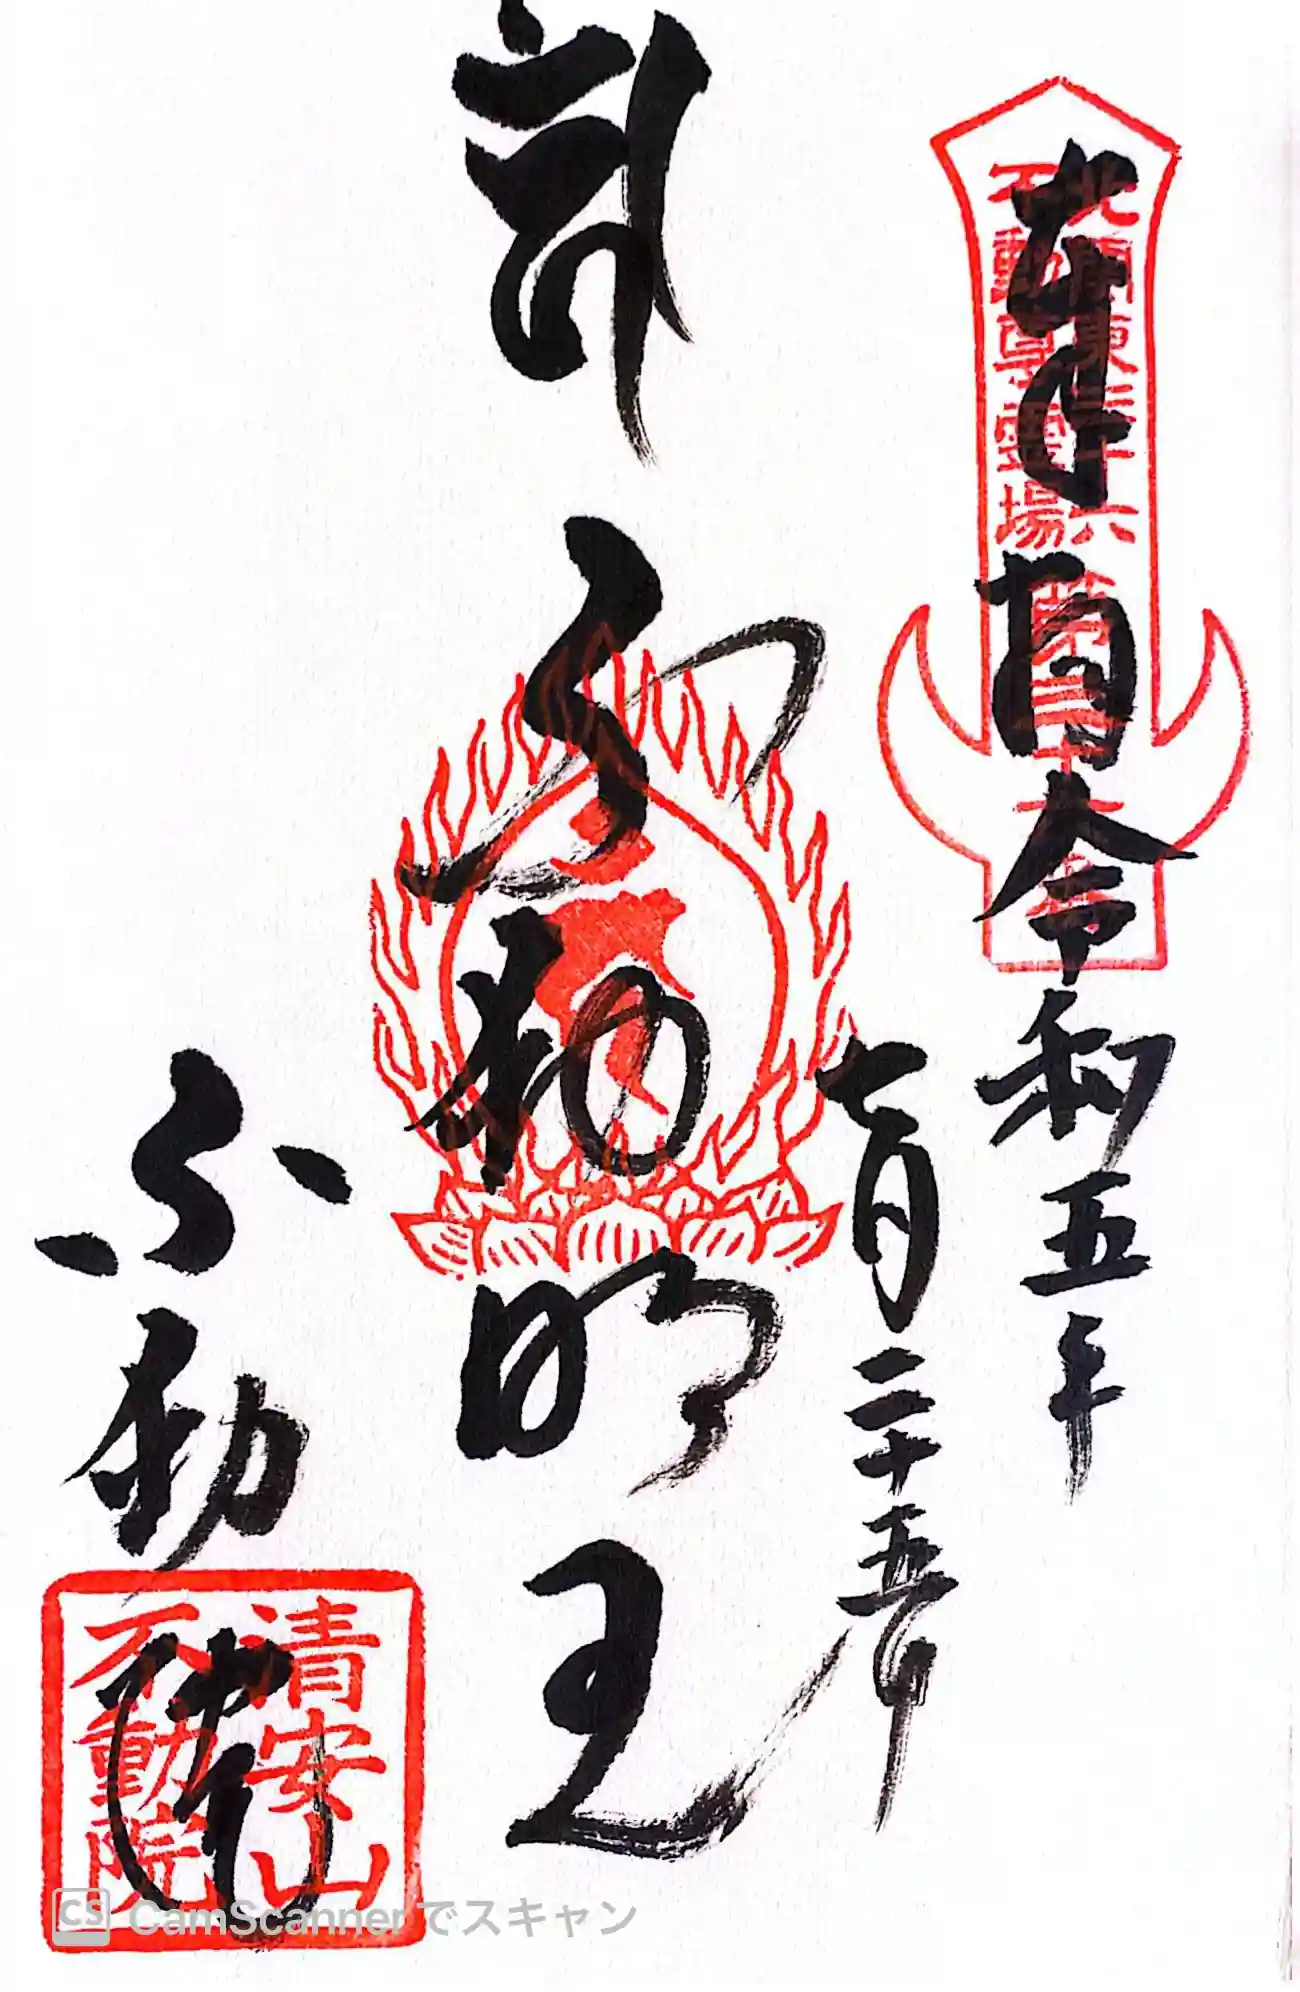 奉拝
令和五年
七月二十五日
不動明王
不動院
北関東三十六
不動尊霊場
清安山
不動院
CS CamScannerでスキャン